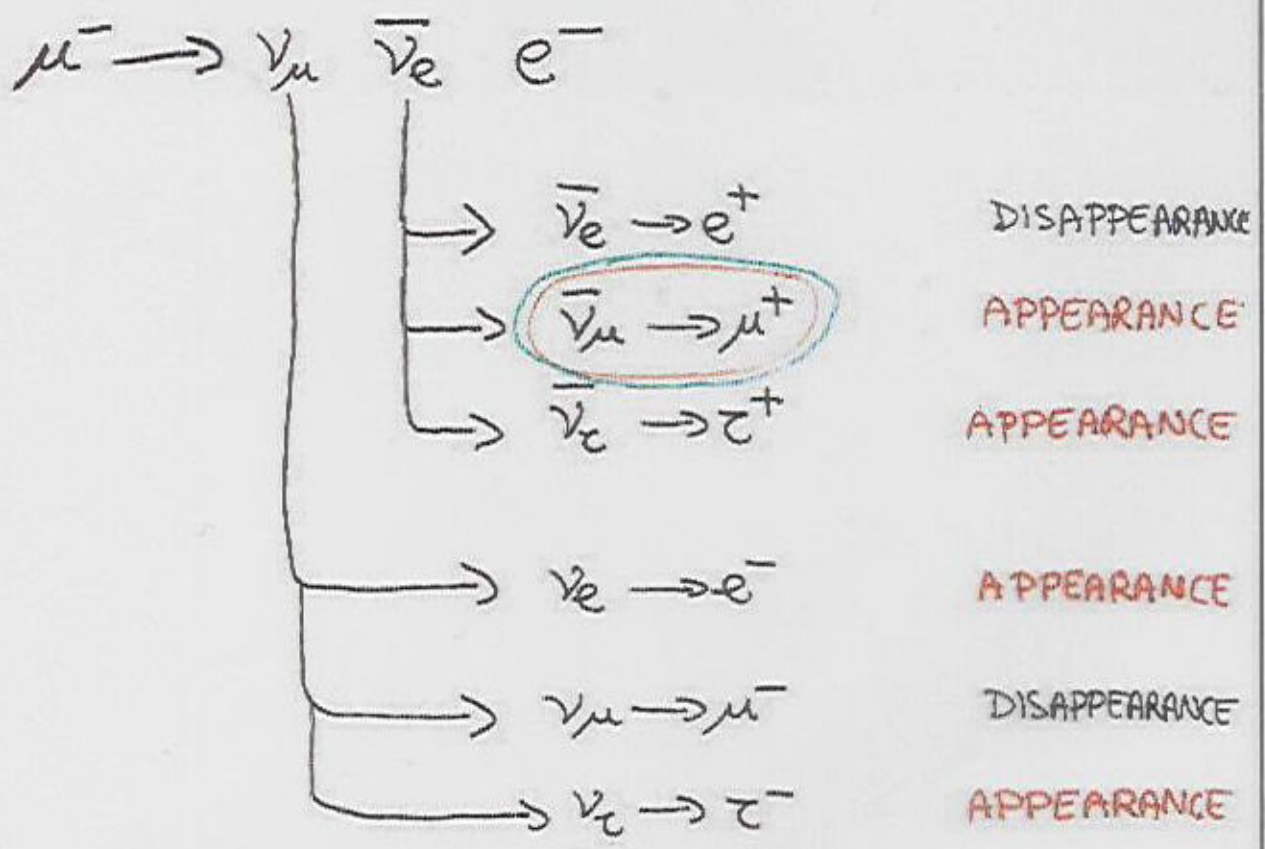 μ⁻ → ν_μ ν̅_e e⁻
ν̅_e → e⁺ DISAPPEARANCE
ν̅_μ → μ⁺ APPEARANCE
ν̅_τ → τ⁺ APPEARANCE
ν_e → e⁻ APPEARANCE
ν_μ → μ⁻ DISAPPEARANCE
ν_τ → τ⁻ APPEARANCE